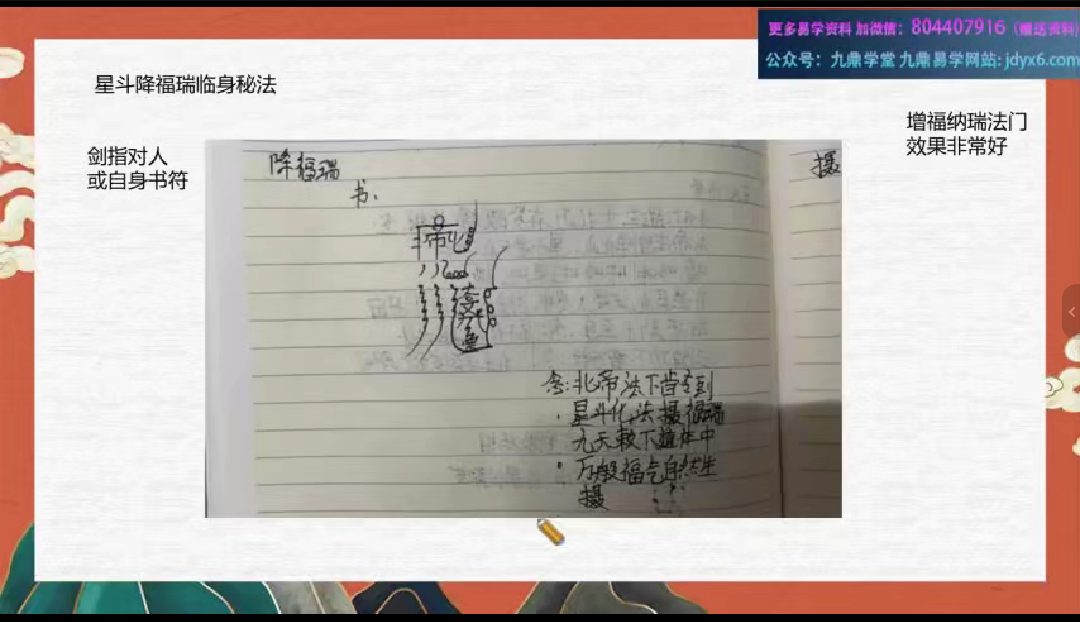 更多易学资料 加微信：804407916（赠送资料）
公众号：九鼎学堂 九鼎易学网站：jdyx6.com
星斗降福瑞临身秘法
增福纳瑞法门
效果非常好
剑指对人
或自身书符
降福瑞
书：
摄
念：北帝法下当专到
星斗化法摄福瑞
九天敕下值体中
万般福气自然生
摄